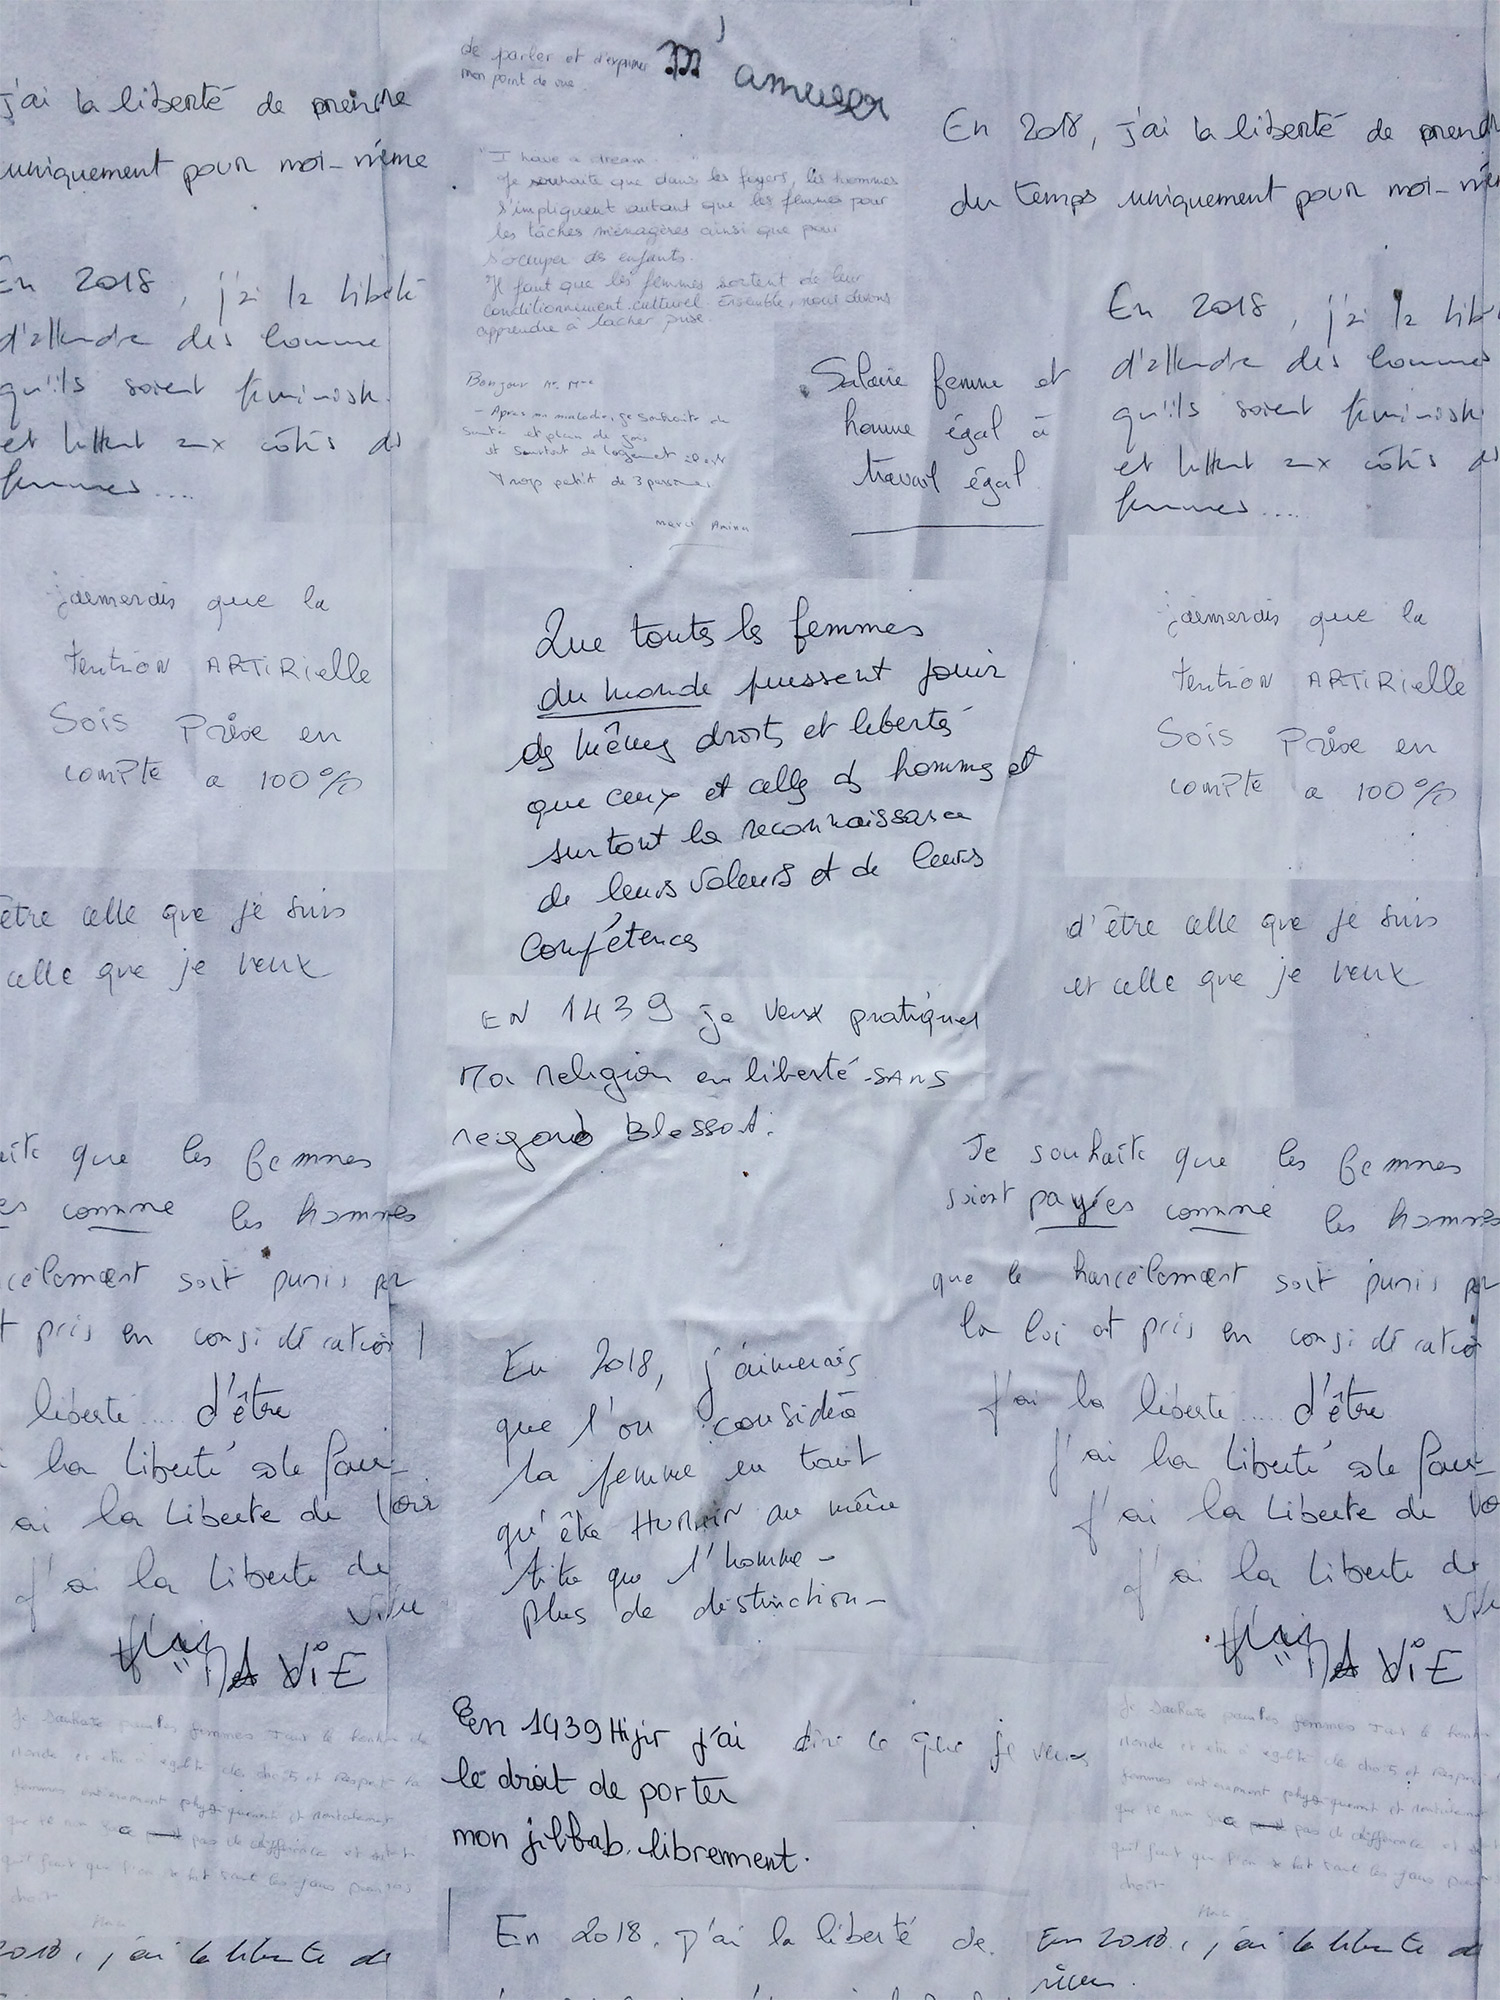 j'ai la liberté de prendre
uniquement pour moi-même
En 2018, j'ai la liberté
d'attendre des homme
qu'ils soient féministe
et luttent aux côtés des
femmes....
j'aimerais que la
tention ARTIRielle
Sois Prise en
compte a 100%
être celle que je suis
celle que je veux
que les femmes
comme les hommes
soit punis par
pris en considération !
liberté .... d'être
ha Liberté de
ai la Liberte de Voir
j'ai la Liberte de
vivre
MA ViE
2018, j'ai la liberté de
de parler et d'exprimer
mon point de vue
M'amuser
"I have a dream..."
Je souhaite que dans les foyers, les hommes
s'impliquent autant que les femmes pour
les tâches ménagères ainsi que pour
s'occuper des enfants.
Il faut que les femmes sortent de leur
conditionnement culturel. Ensemble, nous devons
apprendre à lacher prise.
Bonjour Mr. Mme
- Apres ma maladie, je souhaite de
santé et plein de joie
et surtout de logement
trop petit de 3 personnes
merci Amina
Salaire femme et
homme égal à
travail égal
Que toutes les femmes
du monde puissent jouir
des mêmes droits et libertés
que ceux et celles des hommes et
surtout la reconnaissance
de leurs valeurs et de leurs
compétences
EN 1439 je veux pratiquer
Ma religion en liberté - SANS
regard Blessant.
En 2018, j'aimerais
que l'on considère
la femme en tant
qu'être Humain au même
titre que l'homme -
plus de distinction -
En 1439 Hijir j'ai
le droit de porter
mon jilbab. librement.
dire ce que je veux
En 2018, j'ai la liberté de
En 2018, j'ai la liberté de prendre
du temps uniquement pour moi-même
En 2018, j'ai la
d'attendre des hommes
qu'ils soient féministe
et luttent aux côtés des
femmes.....
j'aimerais que la
tention ARTIRielle
Sois Prise en
compte a 100%
d'être celle que je suis
et celle que je veux
Je souhaite que les femmes
soient payées comme les hommes
que le harcèlement soit punis par
la loi et pris en considération
J'ai la liberté .... d'être
J'ai ha Liberté de
J'ai la Liberte de
J'ai la Liberte de
MA ViE
Je souhaite
En 2018, j'ai la liberté de